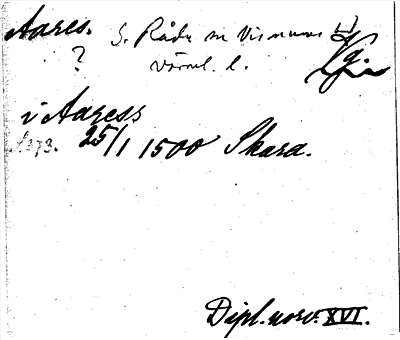 Aares. S. Råda sn Visnums hd
? Värml. l.
i Aaress
s. 373. 25/1 1500 Skara.
Dipl. norv. XVI.